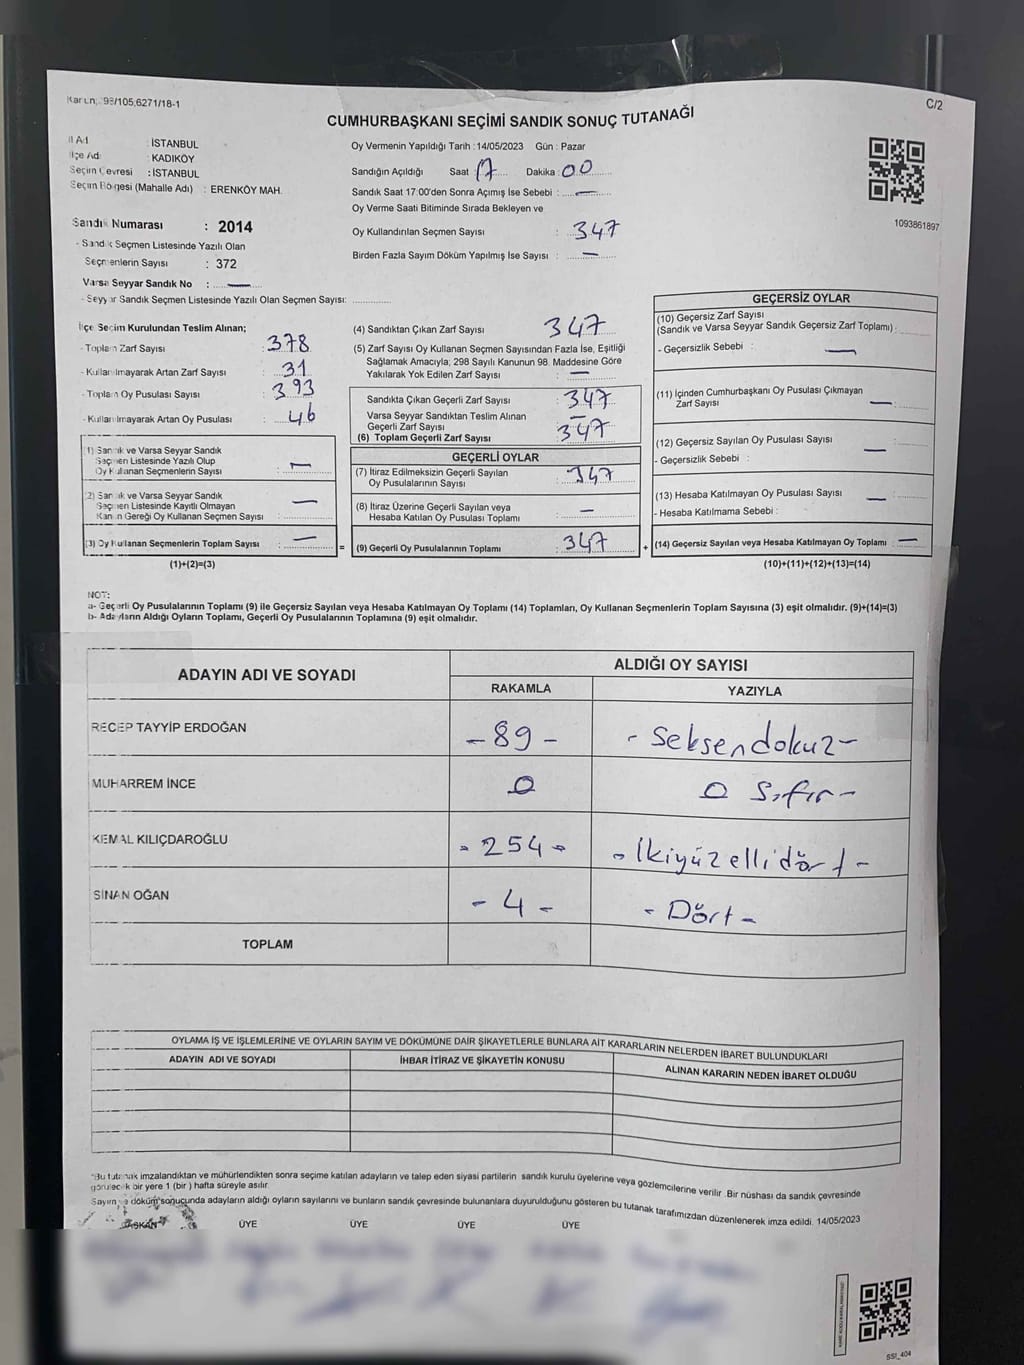 C/2
CUMHURBAŞKANI SEÇİMİ SANDIK SONUÇ TUTANAĞI
İl Adı : İSTANBUL
İlçe Adı : KADIKÖY
Seçim Çevresi : İSTANBUL
Seçim Bölgesi (Mahalle Adı) : ERENKÖY MAH.
Oy Vermenin Yapıldığı Tarih : 14/05/2023 Gün : Pazar
Sandığın Açıldığı Saat : 17 Dakika : 00
Sandık Saat 17:00'den Sonra Açımış İse Sebebi : —
Oy Verme Saati Bitiminde Sırada Bekleyen ve
Oy Kullandırılan Seçmen Sayısı : 347
Birden Fazla Sayım Döküm Yapılmış İse Sayısı : —
1093861897
Sandık Numarası : 2014
- Sandık Seçmen Listesinde Yazılı Olan
Seçmenlerin Sayısı : 372
Varsa Seyyar Sandık No : —
- Seyyar Sandık Seçmen Listesinde Yazılı Olan Seçmen Sayısı:
İlçe Seçim Kurulundan Teslim Alınan;
- Toplam Zarf Sayısı : 378
- Kullanılmayarak Artan Zarf Sayısı : 31
- Toplam Oy Pusulası Sayısı : 393
- Kullanılmayarak Artan Oy Pusulası : 46
(1) Sandık ve Varsa Seyyar Sandık
Seçmen Listesinde Yazılı Olup
Oy Kullanan Seçmenlerin Sayısı : —
(2) Sandık ve Varsa Seyyar Sandık
Seçmen Listesinde Kayıtlı Olmayan
Kanun Gereği Oy Kullanan Seçmen Sayısı : —
(3) Oy Kullanan Seçmenlerin Toplam Sayısı : —
(1)+(2)=(3)
=
(4) Sandıktan Çıkan Zarf Sayısı : 347
(5) Zarf Sayısı Oy Kullanan Seçmen Sayısından Fazla İse, Eşitliği
Sağlamak Amacıyla; 298 Sayılı Kanunun 98. Maddesine Göre
Yakılarak Yok Edilen Zarf Sayısı : —
Sandıkta Çıkan Geçerli Zarf Sayısı : 347
Varsa Seyyar Sandıktan Teslim Alınan
Geçerli Zarf Sayısı : —
(6) Toplam Geçerli Zarf Sayısı : 347
GEÇERLİ OYLAR
(7) İtiraz Edilmeksizin Geçerli Sayılan
Oy Pusulalarının Sayısı : 347
(8) İtiraz Üzerine Geçerli Sayılan veya
Hesaba Katılan Oy Pusulası Toplamı : —
(9) Geçerli Oy Pusulalarının Toplamı : 347
+
GEÇERSİZ OYLAR
(10) Geçersiz Zarf Sayısı
(Sandık ve Varsa Seyyar Sandık Geçersiz Zarf Toplamı) :
- Geçersizlik Sebebi : —
(11) İçinden Cumhurbaşkanı Oy Pusulası Çıkmayan
Zarf Sayısı —
(12) Geçersiz Sayılan Oy Pusulası Sayısı —
- Geçersizlik Sebebi :
(13) Hesaba Katılmayan Oy Pusulası Sayısı —
- Hesaba Katılmama Sebebi :
(14) Geçersiz Sayılan veya Hesaba Katılmayan Oy Toplamı : —
(10)+(11)+(12)+(13)=(14)
NOT:
a- Geçerli Oy Pusulalarının Toplamı (9) ile Geçersiz Sayılan veya Hesaba Katılmayan Oy Toplamı (14) Toplamları, Oy Kullanan Seçmenlerin Toplam Sayısına (3) eşit olmalıdır. (9)+(14)=(3)
b- Adayların Aldığı Oyların Toplamı, Geçerli Oy Pusulalarının Toplamına (9) eşit olmalıdır.
ADAYIN ADI VE SOYADI ALDIĞI OY SAYISI
RAKAMLA YAZIYLA
RECEP TAYYİP ERDOĞAN - 89 - - Seksendokuz -
MUHARREM İNCE 0 0 Sıfır -
KEMAL KILIÇDAROĞLU - 254 - - İkiyüzellidört -
SİNAN OĞAN - 4 - - Dört -
TOPLAM
OYLAMA İŞ VE İŞLEMLERİNE VE OYLARIN SAYIM VE DÖKÜMÜNE DAİR ŞİKAYETLERLE BUNLARA AİT KARARLARIN NELERDEN İBARET BULUNDUKLARI
ADAYIN ADI VE SOYADI İHBAR İTİRAZ VE ŞİKAYETİN KONUSU ALINAN KARARIN NEDEN İBARET OLDUĞU
*Bu tutanak imzalandıktan ve mühürlendikten sonra seçime katılan adayların ve talep eden siyasi partilerin sandık kurulu üyelerine veya gözlemcilerine verilir. Bir nüshası da sandık çevresinde
görülecek bir yere 1 (bir ) hafta süreyle asılır.
Sayım ve döküm sonucunda adayların aldığı oyların sayılarını ve bunların sandık çevresinde bulunanlara duyurulduğunu gösteren bu tutanak tarafımızdan düzenlenerek imza edildi. 14/05/2023
BAŞKAN ÜYE ÜYE ÜYE ÜYE
SSI_404